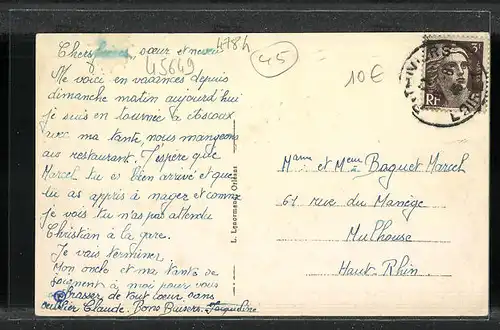 Chers frères, sœur et neveu
4784
45649
45
10€
Me voici en vacances depuis
dimanche matin aujourd'hui
je suis en tournée à Ascoux
avec ma tante nous mangeons
au restaurant. J'espère que
Marcel tu es bien arrivé et que
tu as appris à nager et comme
je vois tu n'as pas attendu
Christian à la gare.
Je vais terminer
Mon oncle et ma tante se
joignent à moi pour vous
embrasser de tout cœur sans
oublier Claude. Bons Baisers. Jacqueline
L. Lenormand, Orléans
3F
RF
PITHIVIERS
LOIRET
Mme et Meur Baguet Marcel
61 rue du Manège
Mulhouse
Haut-Rhin